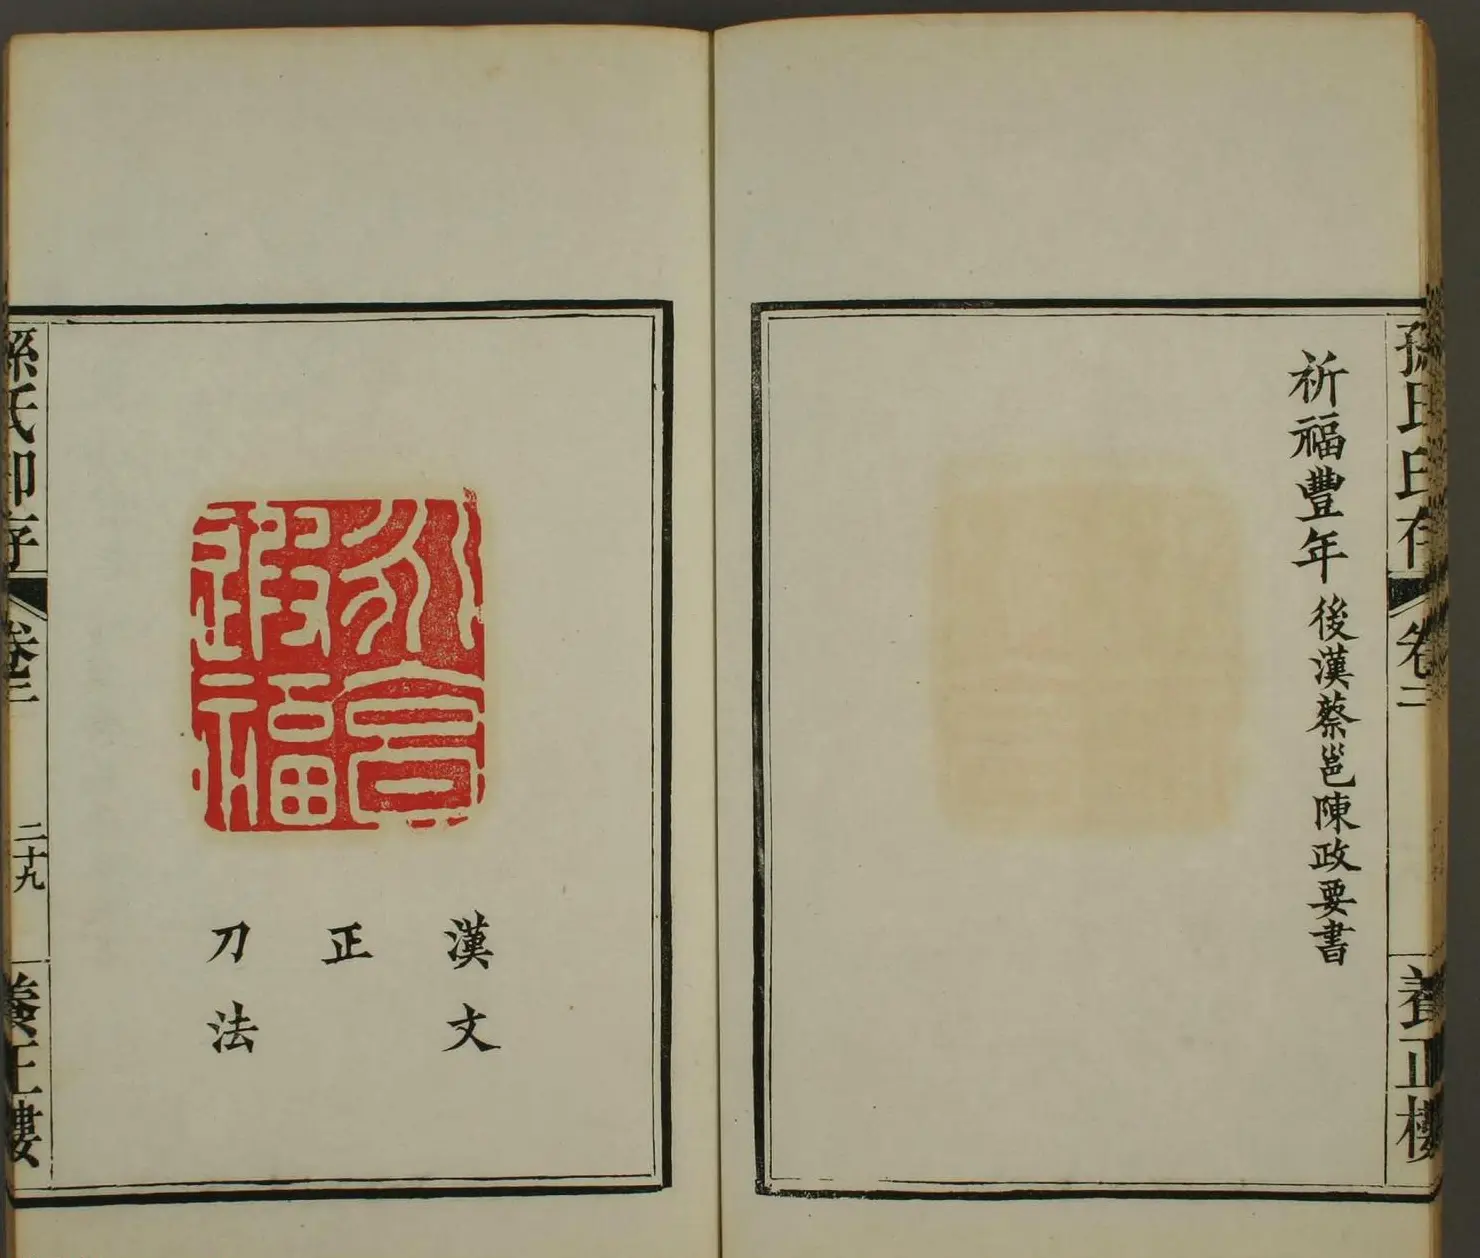 孫氏印存
卷二
養正樓
祈福豐年 後漢蔡邕陳政要書
永享
遐福
漢文
正
刀法
孫氏印存
卷二
二十九
養正樓